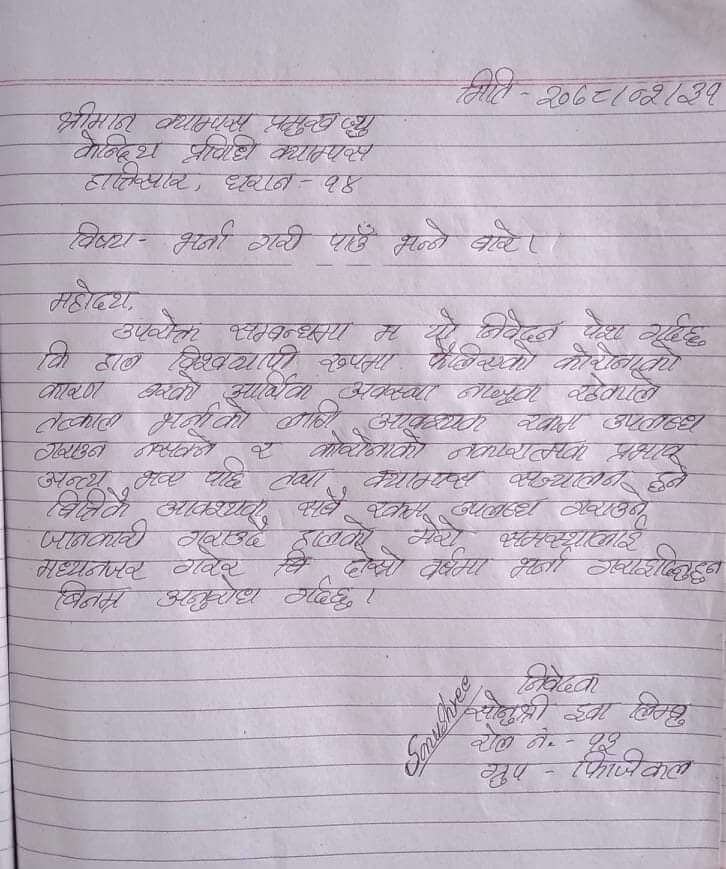 मिति - २०७८।०२।३१
श्रीमान क्याम्पस प्रमुख ज्यु
केन्दिय प्रविधि क्याम्पस
हात्तिसार, धरान - १४
विषय - भर्ना गरी पाउँ भन्ने बारे।
महोदय,
उपरोक्त सम्बन्धमा म यो निवेदन पेश गर्दछु
कि हाल विश्वव्यापी रुपमा फैलिएको कोरोनाको
कारण घरको आर्थिक अवस्था नाजुक रहेकाले
तत्काल भर्नाको लागी आवश्यक रकम उपलब्ध
गराउन नसक्ने र कोरोनाको नकारात्मक प्रभाव
अन्त्य भए पछि तथा क्याम्पस सञ्चालन हुने
बित्तिकै आवश्यक सबै रकम उपलब्ध गराउने
जानकारी गराउदै हालको मेरो समस्यालाई
मध्यनजर गरेर बि दोस्रो वर्षमा भर्ना गराइदिनुहुन
बिनम्र अनुरोध गर्दछु।
निवेदक
Sonushree सोनुश्री इवा लिम्बु
रोल नं. - १३
ग्रुप - फिजिकल